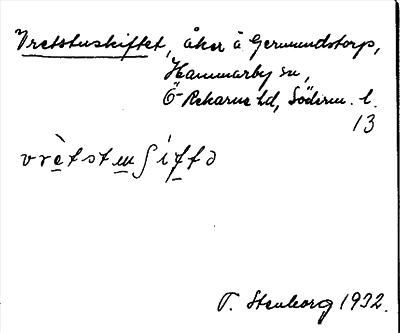 Vretstuskiftet, åker å Germundstorp,
Hammarby sn,
Ö Rekarne hd, Söderm. l.
13
vrètstuʃiftə
T. Stenborg 1932.